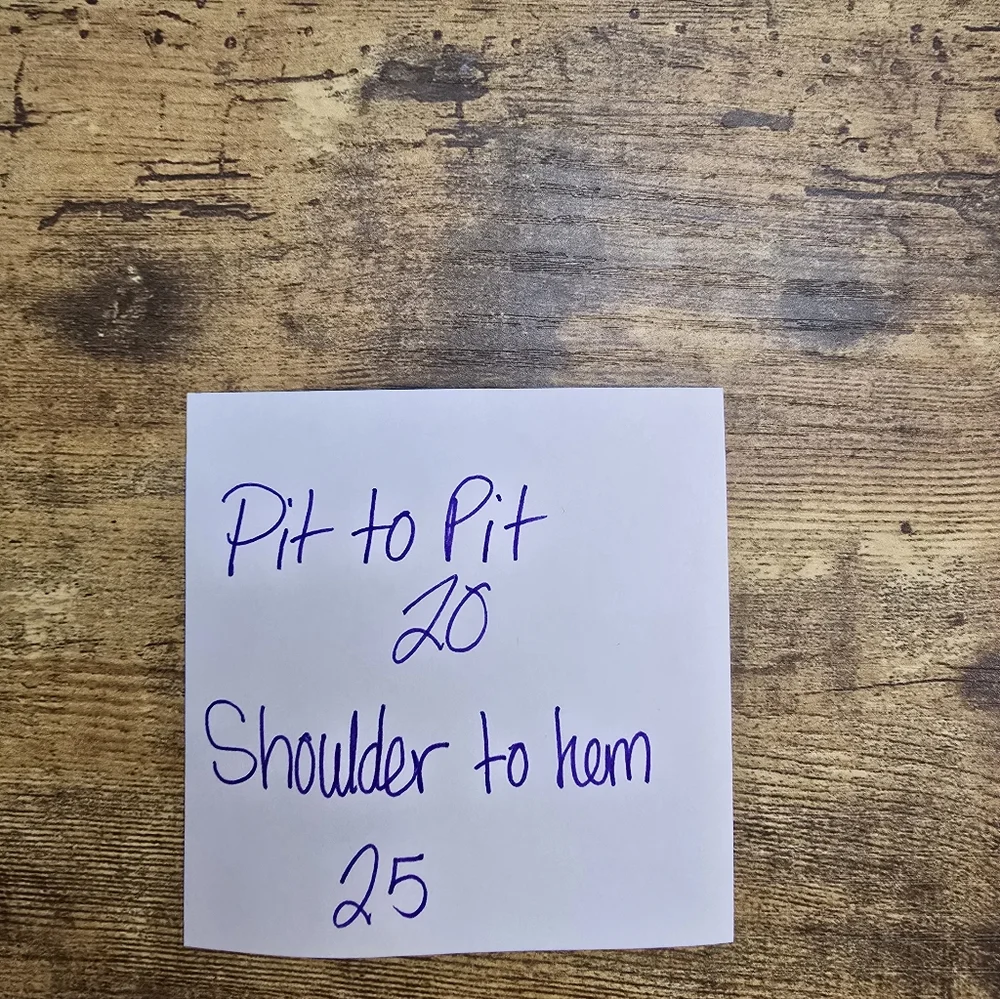 Pit to Pit
20
Shoulder to hem
25